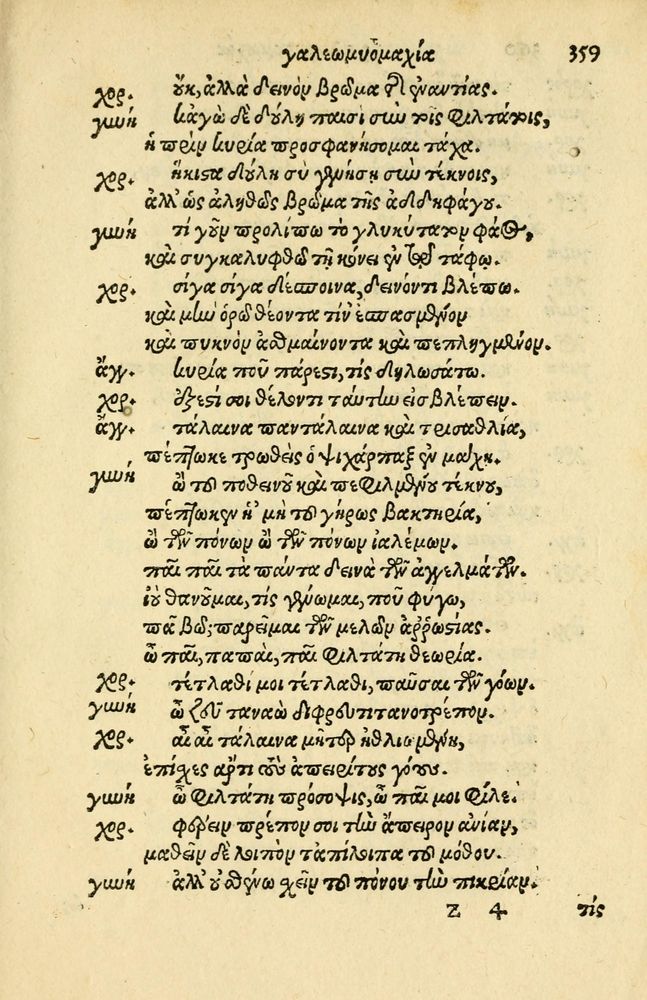 γαλεωμυομαχία 359
χορ. οὔκ, ἀλλὰ δεινὸν βρῶμα τῆς ἐναντίας.
γυνὴ κἀγὼ δὲ δούλη παισὶ σὺν τοῖς φιλτάτοις,
ἡ πρὶν κυρία προσφανήσομαι τάχα.
χορ. ἥκιστα δούλη σὺ γενήσῃ σὺν τέκνοις,
ἀλλ' ὡς ἀληθῶς βρῶμα τῆς ἀδδηφάγου.
γυνὴ τί γοῦν προλίπω τὸ γλυκύτατον φάος,
καὶ συγκαλυφθῶ τῇ κόνει ἐν τῷ τάφῳ.
χορ. σίγα σίγα δέσποινα, δεινόν τι βλέπω.
καὶ μὴν ὁρῶ θέοντά τιν' ἐσπασμένον
καὶ πυκνὸν ἀσθμαίνοντα καὶ πεπληγμένον.
ἄγγ. κυρία ποῦ πάρεστι, τίς δηλωσάτω.
χορ. ἔξεστί σοι θέλοντι ταύτην εἰσβλέπειν.
ἄγγ. τάλαινα παντάλαινα καὶ τρισαθλία,
πέπτωκε τρωθεὶς ὁ ψιχάρπαξ ἐν μάχῃ.
γυνὴ ὢ τοῦ ποθεινοῦ καὶ πεφιλμένου τέκνου,
πέπτωκεν ἡ 'μὴ τοῦ γήρως βακτηρία,
ὢ τῶν πόνων ὢ τῶν πόνων ἰαλέμων.
παῖ παῖ τὰ πάντα δεινὰ τῶν ἀγγελμάτων.
ἰοὺ θανοῦμαι, τίς γένωμαι, ποῦ φύγω,
πᾶ βῶ; παρεῖμαι τῶν μελῶν ἀῤῥωστίας.
ὦ παῖ, παπαῖ, παῖ φιλτάτη θεωρία.
χορ. τέτλαθί μοι τέτλαθι, παῦσαι τῶν γόων.
γυνὴ ὦ ζεῦ ταναῶ
χορ. αἶ αἶ τάλαινα μῆτερ ἠθλιωμένη,
ἐπίσχες ἄρτι τοὺς ἀπειρίτους γόους.
γυνὴ ὦ φιλτάτη πρόσοψις, ὦ παῖ μοι φίλε.
χορ. φέρειν πρέπον σοι τὴν ἄπειρον ἀνίαν,
μαθεῖν δὲ λοιπὸν τἀπίλοιπα τοῦ μόθου.
γυνὴ ἀλλ' οὐ σθένω χεῖν τοῦ πόνου τὴν πικρίαν.
Z 4 τίς